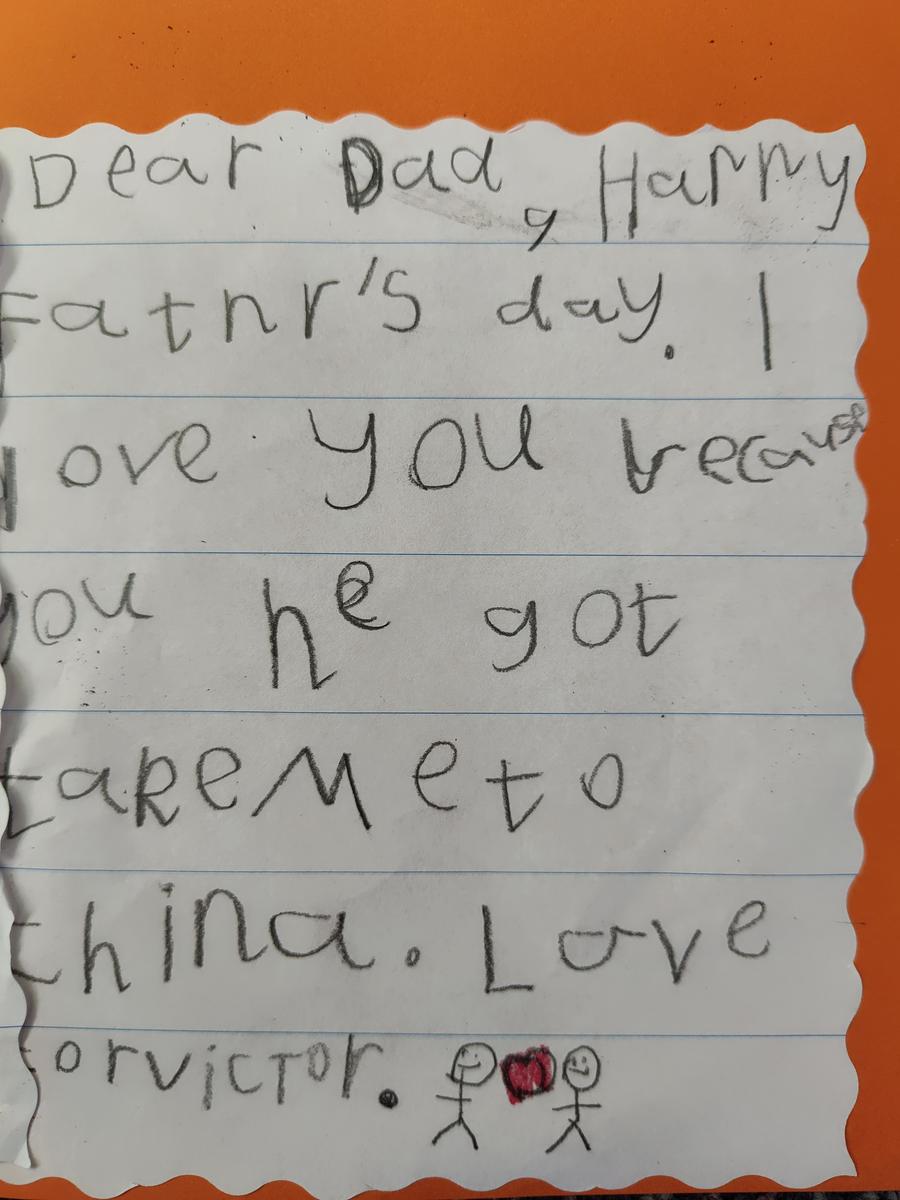 Dear Dad, Happy
Fatnr's day. I
love you because
you he got
take me to
china. Love
for victor.